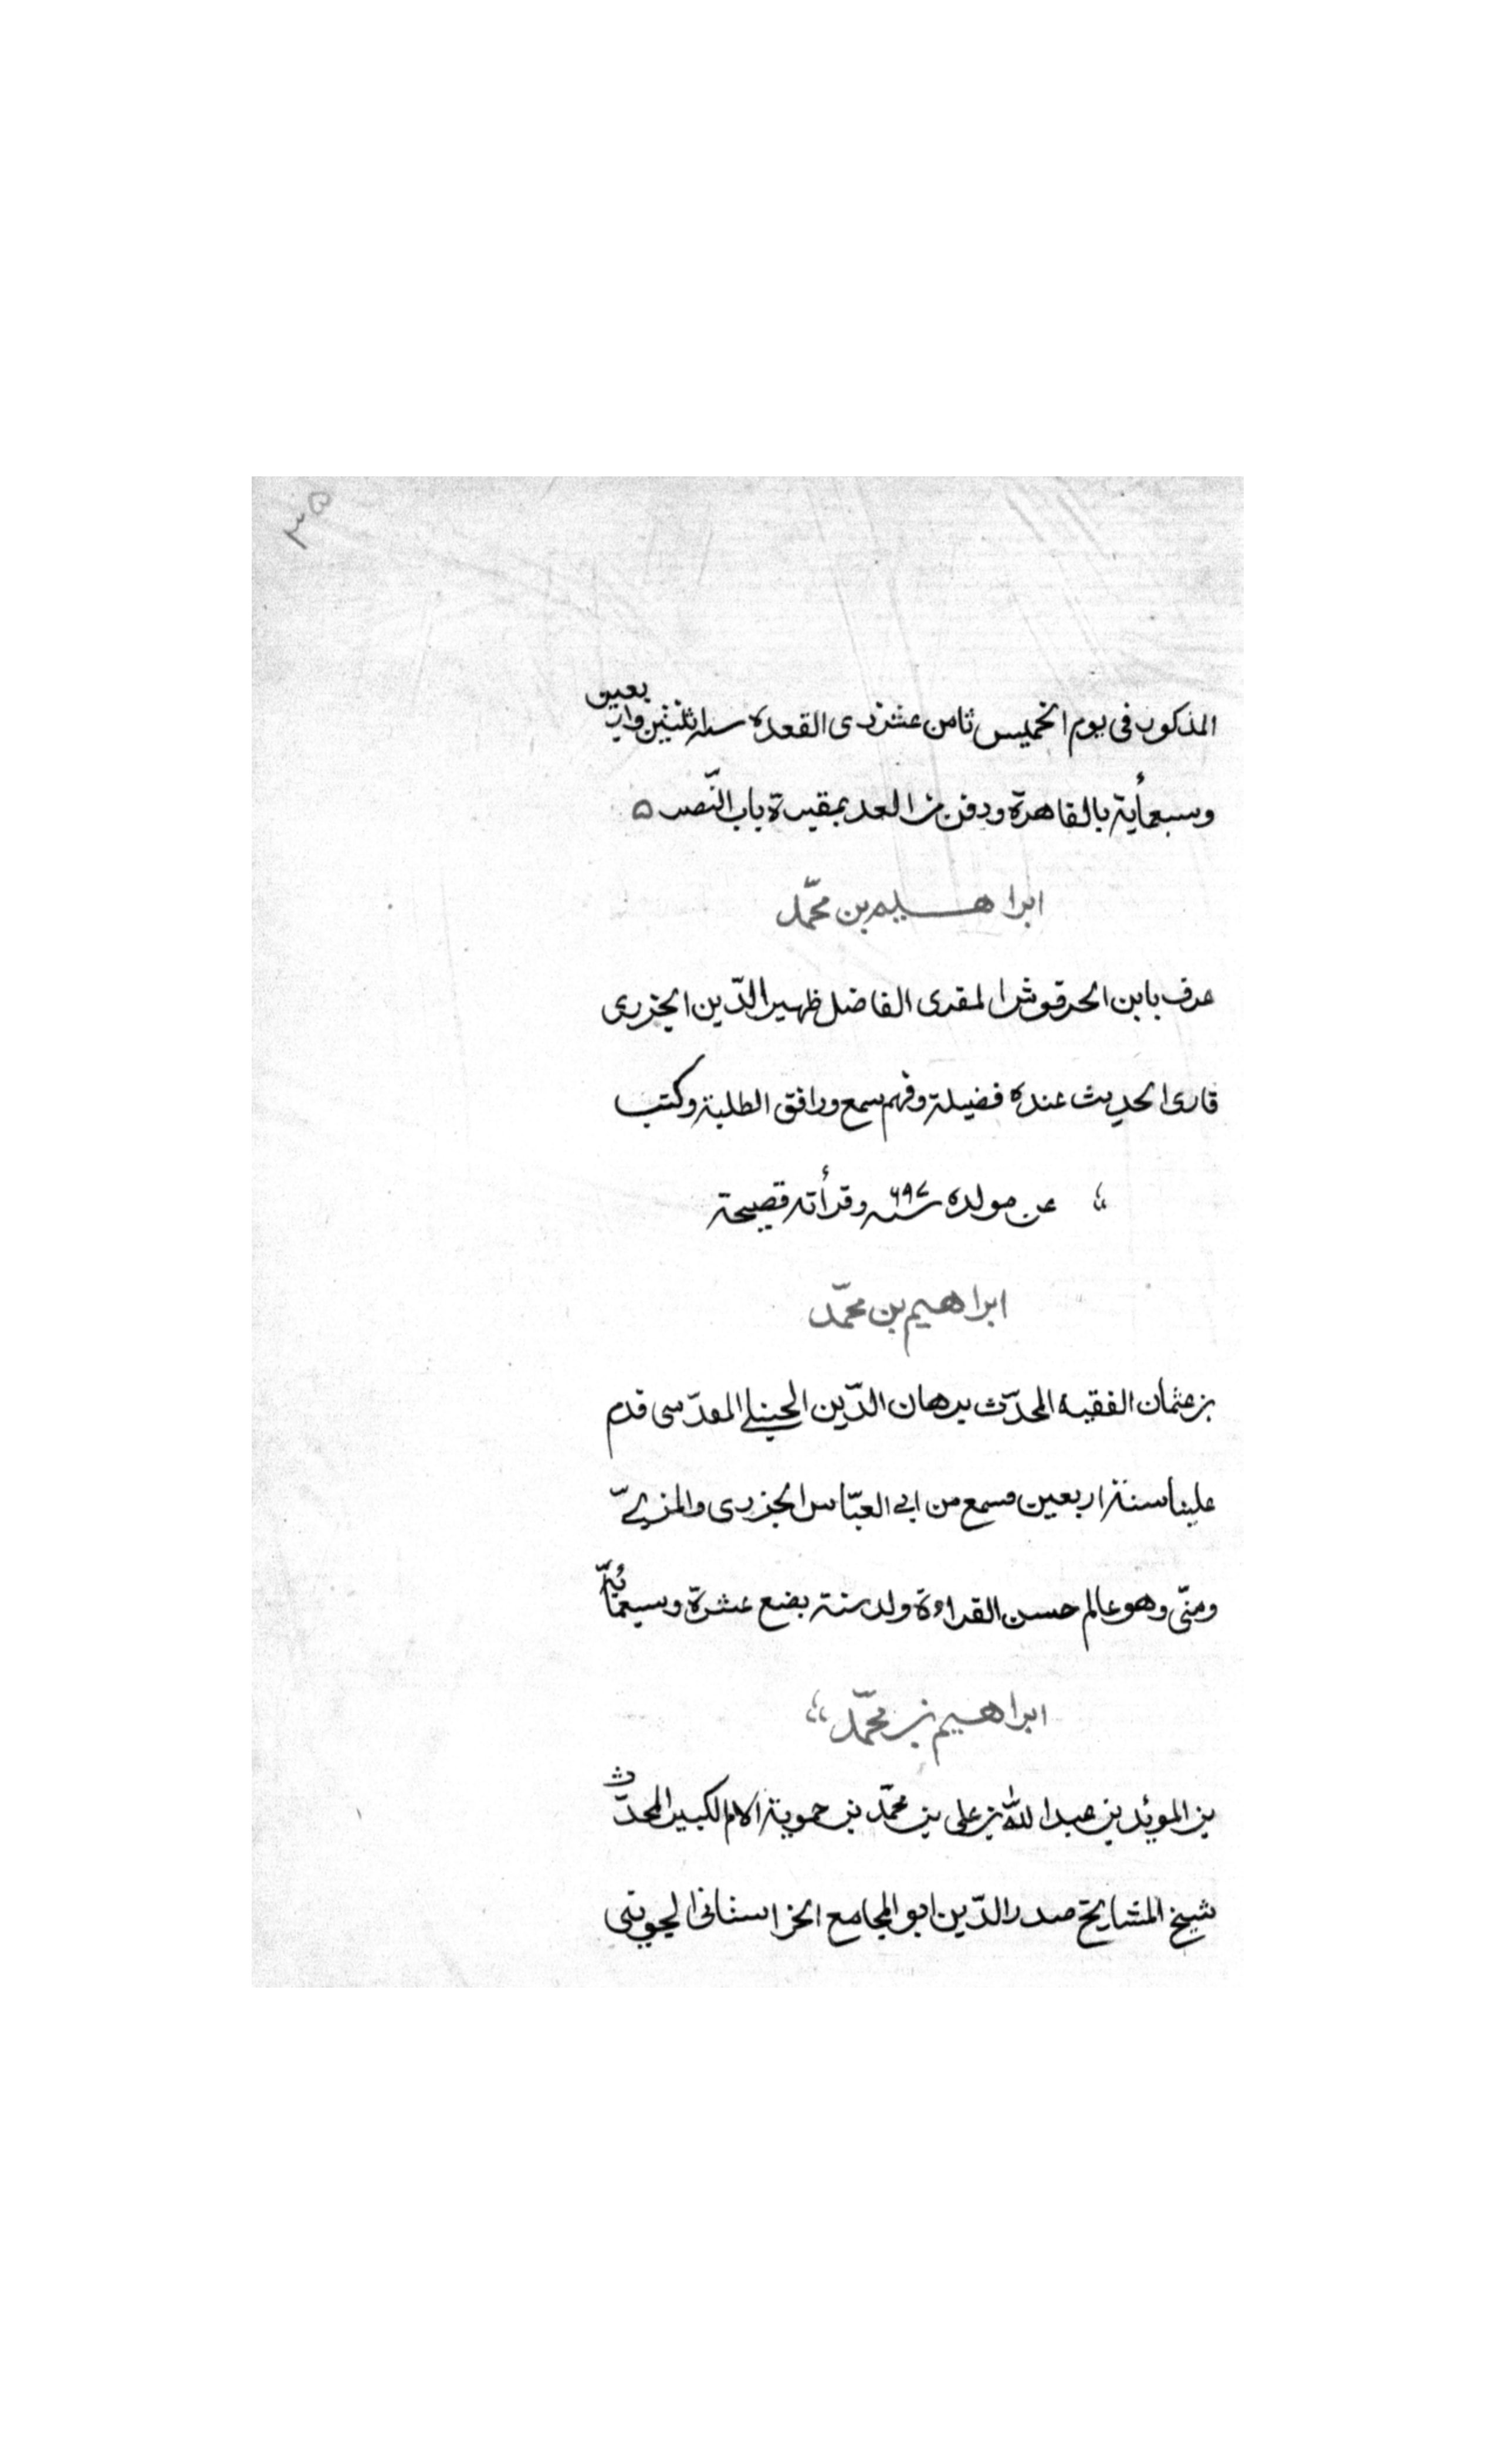 ٣٥
المذكور فى يوم الخميس ثامن عشر ذى القعده سنه اثنين واربعين
وسبعمأية بالقاهرة ودفن من العد بمقبرة باب النّصر ۵
ابراهيم بن محمّد
عرف بابن الحرقوش المقرى الفاضل ظهير الدّين الجزرى
قارى الحديث عنده فضيلة وفهم سمع ورافق الطلبة وكتب
عن مولده سنه وقرأته فصيحة
ابراهيم بن محمّد
بن عثمان الفقيه المحدّث برهان الدّين الحنبلى المقدّسى قدم
علينا سنة اربعين وسمع من ابى العبّاس الجزرى والمزىّ
ومنّى وهو عالم حسن القراءة ولد سنة بضع عشرة وسبعمائة
ابراهيم بن محمّد
بن المويّد بن عبد الله بن على بن محمّد بن حموية الامام الكبير المحدّث
شيخ المشايخ صدر الدّين ابو المجامع الخراسانى الجوينى